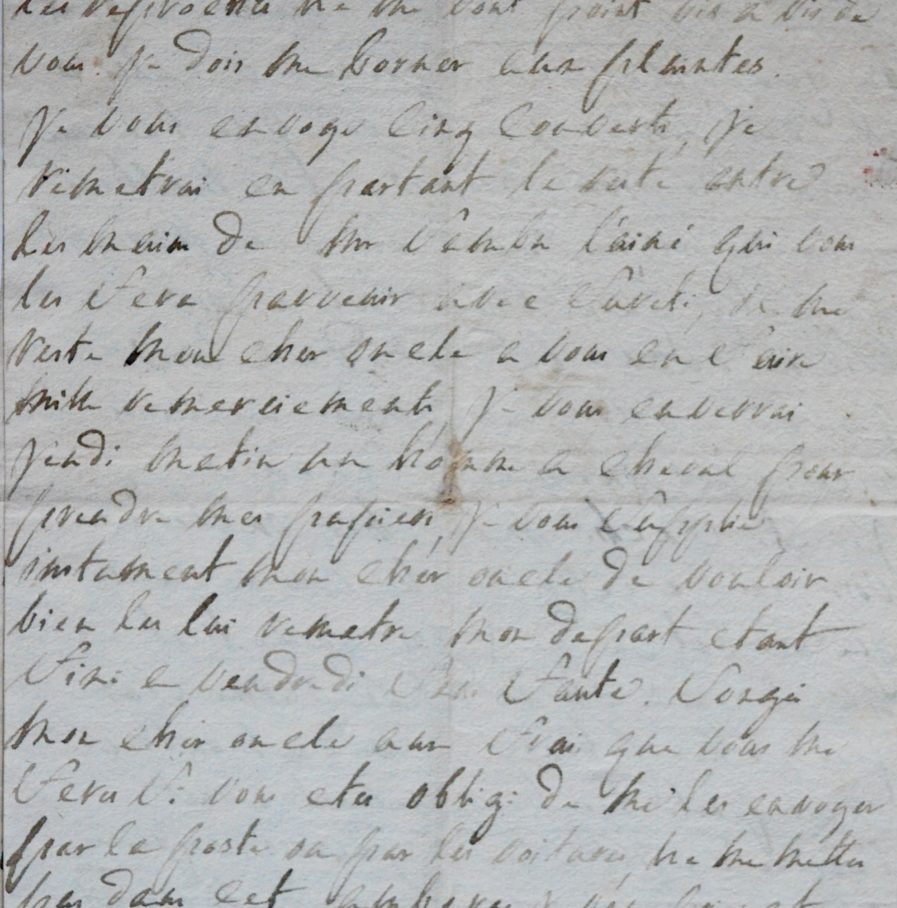 les reproches ne me vont point vis a vis de
vous. je dois me borner aux plaintes.
je vous envoye cinq couverts, je
remetrai en partant le reste entre
les mains de Mr l'ainé qui vous
les fera parvenir avec sureté, il me
reste mon cher oncle a vous en faire
mille remerciements, je vous enverrai
jeudi matin un homme a cheval pour
prendre mes papiers, je vous supplie
instament mon cher oncle de vouloir
bien les lui remetre mon depart etant
fixé a vendredi sans faute. Songés
mon cher oncle aux frai que vous me
ferés si vous etes obligé de me les envoyer
par la poste ou par les voitures, ne me mettes
pas dans cet